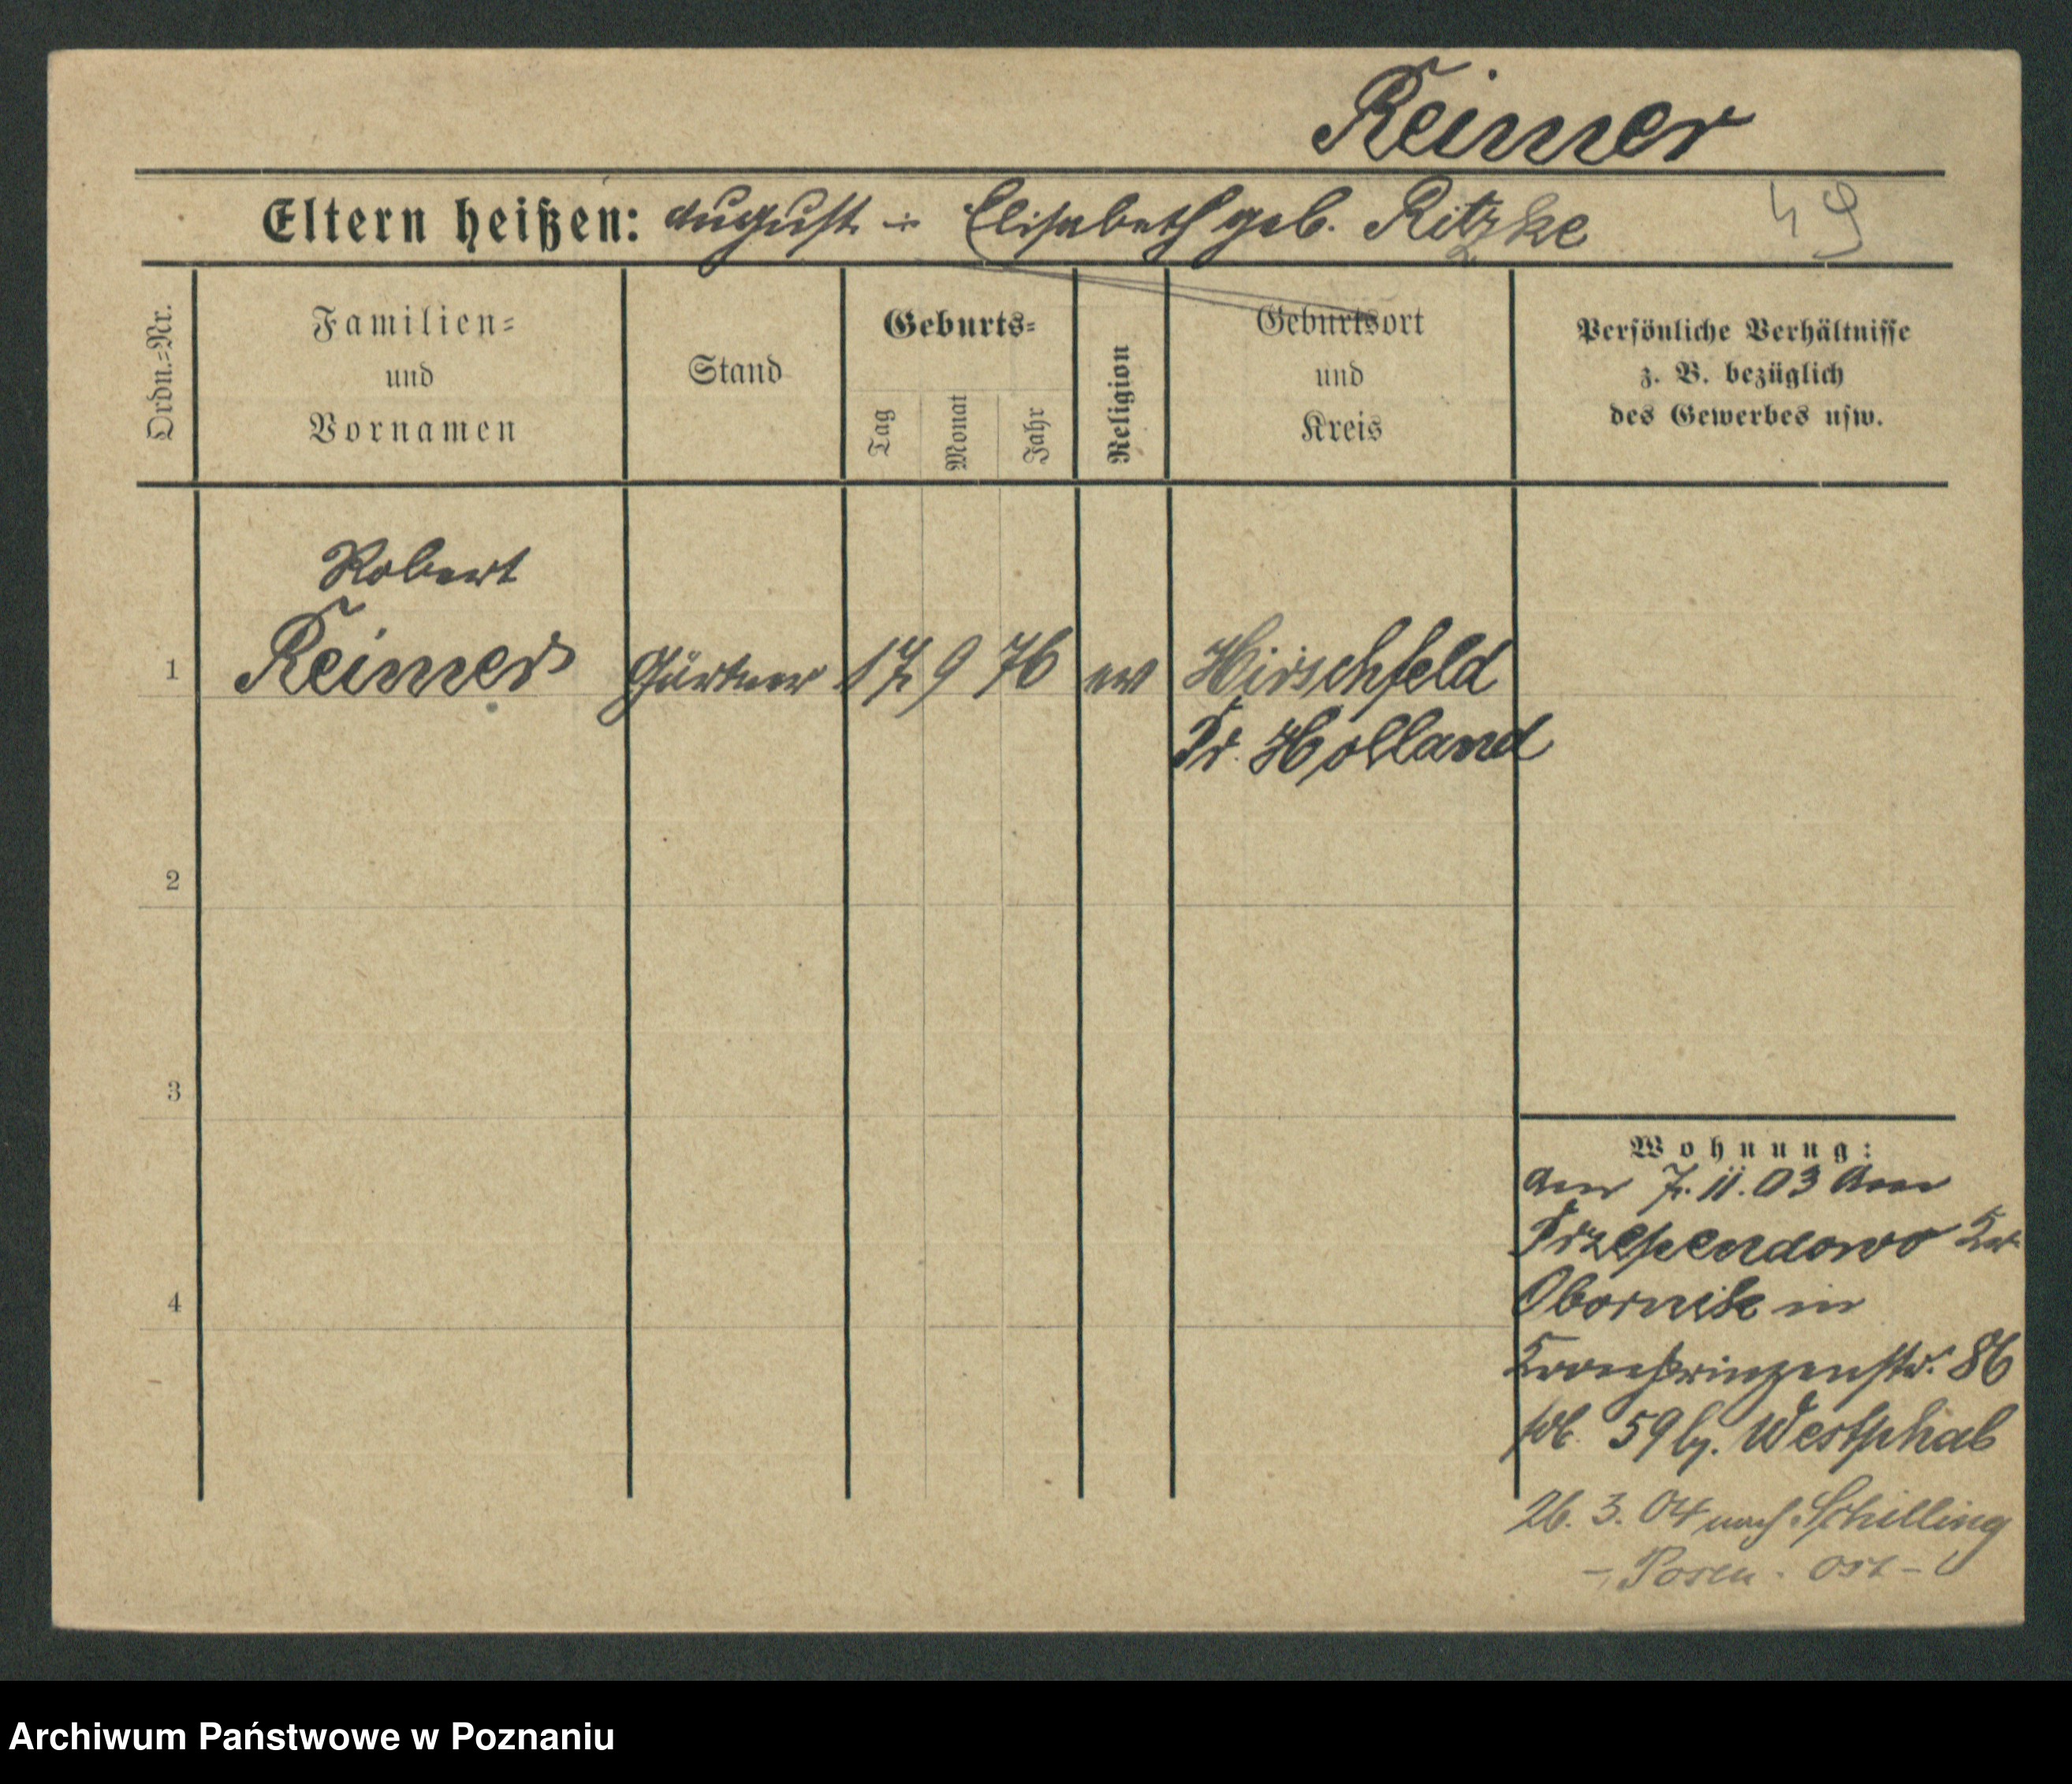 Reimer
Eltern heißen: August u Elisabeth geb. Ritzke 49
Ordn.=Nr. Familien= und Vornamen Stand Geburts= Tag Monat Jahr Religion Geburtsort und Kreis Persönliche Verhältnisse z. B. bezüglich des Gewerbes usw.
Robert
1 Reimer Gärtner 17 9 76 ev Hirschfeld
Pr. Holland
2
3
Wohnung:
am 7. 11. 03 von
Przependowo Kr.
4 Obornik in
Kronprinzenstr. 86
59 bz. Westphal
26. 3. 04 nach Schilling
- Posen. Ost -
Archiwum Państwowe w Poznaniu